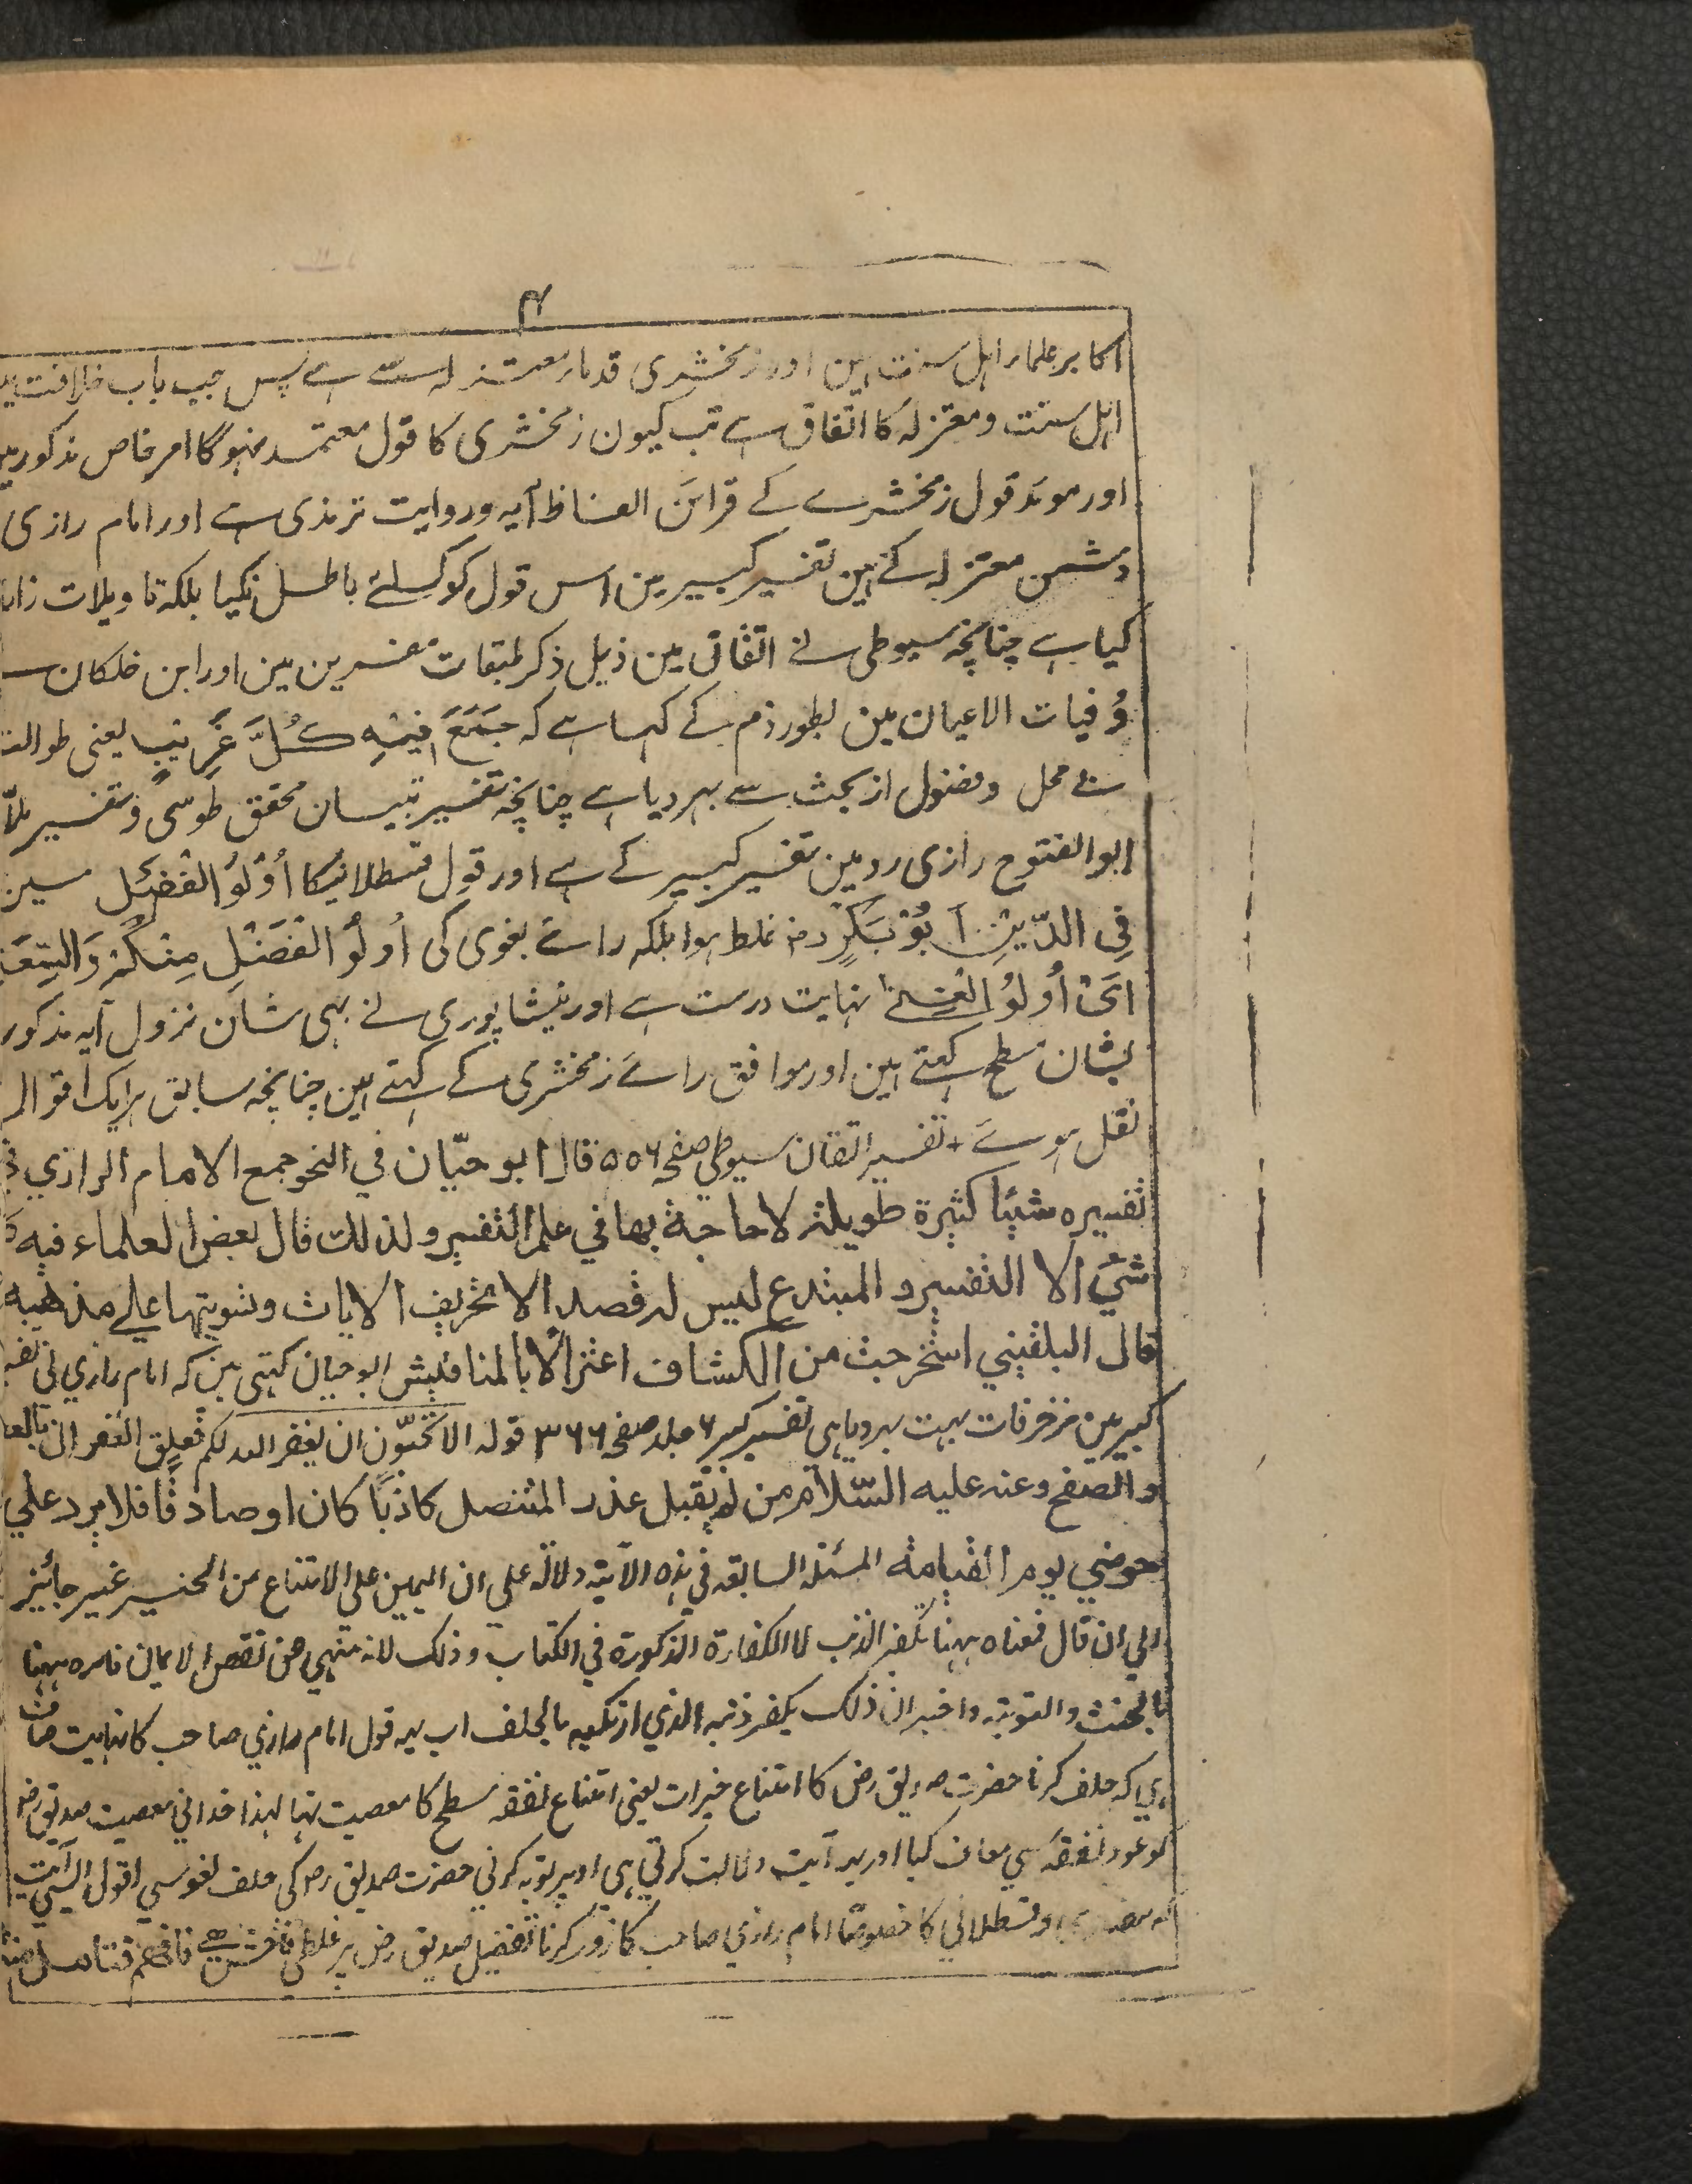 ۴
اکابر علماء اہل سنت ہین اور زمخشری قدماء معتزلہ سے ہے پس جب باب خلافت
اہل سنت و معتزلہ کا اتفاق ہے تب کیون زمخشری کا قول معتمد نہوگا امر خاص مذکور
اور موئد قول زمخشرے کے قرائن الفاظ آیہ و روایت ترمذی ہے اور امام رازی
دشمن معتزلہ کے ہین تفسیر کبیر مین اس قول کو کسلئے باطل نکیا بلکہ تاویلات
کیا ہے چنانچہ سیوطی نے اتقان مین ذیل ذکر طبقات مفسرین مین اور ابن خلکان
وُفیات الاعیان مین بطور ذم کے کہا ہے کہ جَمَعَ فِیْہِ کُلَّ غَرِیْبٍ یعنی طوالت
بے محل و فضول از بحث سے بہر دیا ہے چنانچہ تفسیر تبیان محقق طوسی و تفسیر ملا
ابو الفتوح رازی رد مین تفسیر کبیر کے ہے اور قول قسطلانیکا اُوْلُوُا الْفَضْلِ
فِی الدِّیْنِ اَبُوْ بَکْرٍ رض غلط ہوا بلکہ رائے بغوی کی اُولُو الْفَضْلِ مِنْکُمْ وَالسَّعَۃِ
اَیْ اُولُوُ الْغِنےٰ نہایت درست ہے اور نیشاپوری نے بہی شان نزول آیہ مذکور
بشان مسطح کہتے ہین اور موافق رائے زمخشری کے کہتے ہین چنانچہ سابق ہر ایک اقوال
نقل ہوے + تفسیر اتقان سیوطی صفحہ ۵۵۶ قال ابو حیّان في النحو جمع الامام الرازي
تفسیره شیئا کثیرة طویلة لا حاجة بها في علم التفسیر ولذلك قال بعض العلماء فیه
شئ الا التفسیر والمبتدع لیس له قصد الا تحریف الایات وتسویتها علے مذهبه
قال البلقیني استخرجت من الکشاف اعتزالا بالمناقیش ابو حیان کہتی ہین کہ امام رازي نی
کبیر مین مزخرفات بہت بہر دیا ہی تفسیر کبیر ۶ جلد صفحہ ۳۶۶ قولہ الا تحبّون ان یغفر اللہ لکم فعلق الغفران
والصفح وعنه علیه السّلام من لم یقبل عذر المتنصل کاذبًا کان او صادقًا فلا یرد علي
حوضي یوم القیامة المسئلہ السابعہ في ہذہ الآیۃ دلالۃ علي ان الیمین علی الامتناع من الخیر غیر جائیز
الي ان قال فمعناہ ہہنا تکفیر الذنب لا الکفارۃ المذکورۃ في الکتاب وذلک لانہ منہي عن نقض الایمان فامرہ ہہنا
بالحنث والتوبۃ واخبر ان ذلک یکفر ذنبہ الذي ارتکبہ بالحلف اب یہ قول امام رازي صاحب کا نہایت صاف
ہي کہ حلف کرنا حضرت صدیق رض کا امتناع خیرات یعنی امتناع نفقہ مسطح کا معصیت تہا لہذا خدانی معصیت صدیق رض
کو عود نفقہ سي معاف کیا اور یہ آیت دلالت کرتي ہي اوپر توبہ کرنی حضرت صدیق رض کی حلف لغو سي اقول ایسي آیت
وقسطلاني کا خصوصًا امام رازي صاحب کا زور کرنا تفضیل صدیق رض پر غلطي فاحش ہے فافهم فتامل